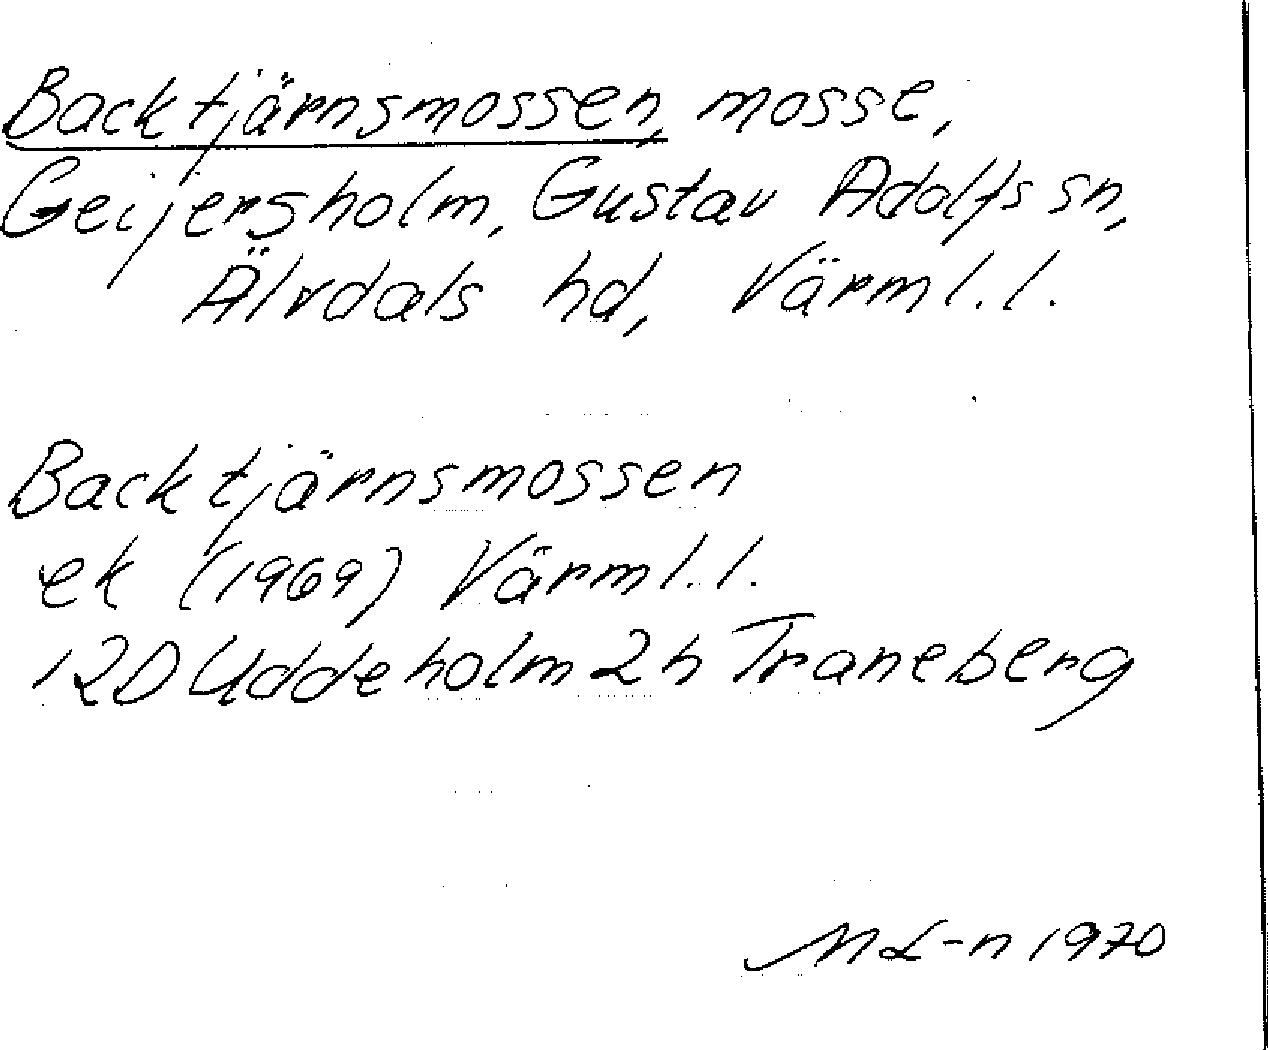 Backtjärnsmossen, mosse,
Geijersholm, Gustav Adolfs sn,
Älvdals hd, Värml. l.
Backtjärnsmossen
ek (1969) Värml. l.
12D Uddeholm 2h Traneberg
ML-n 1970